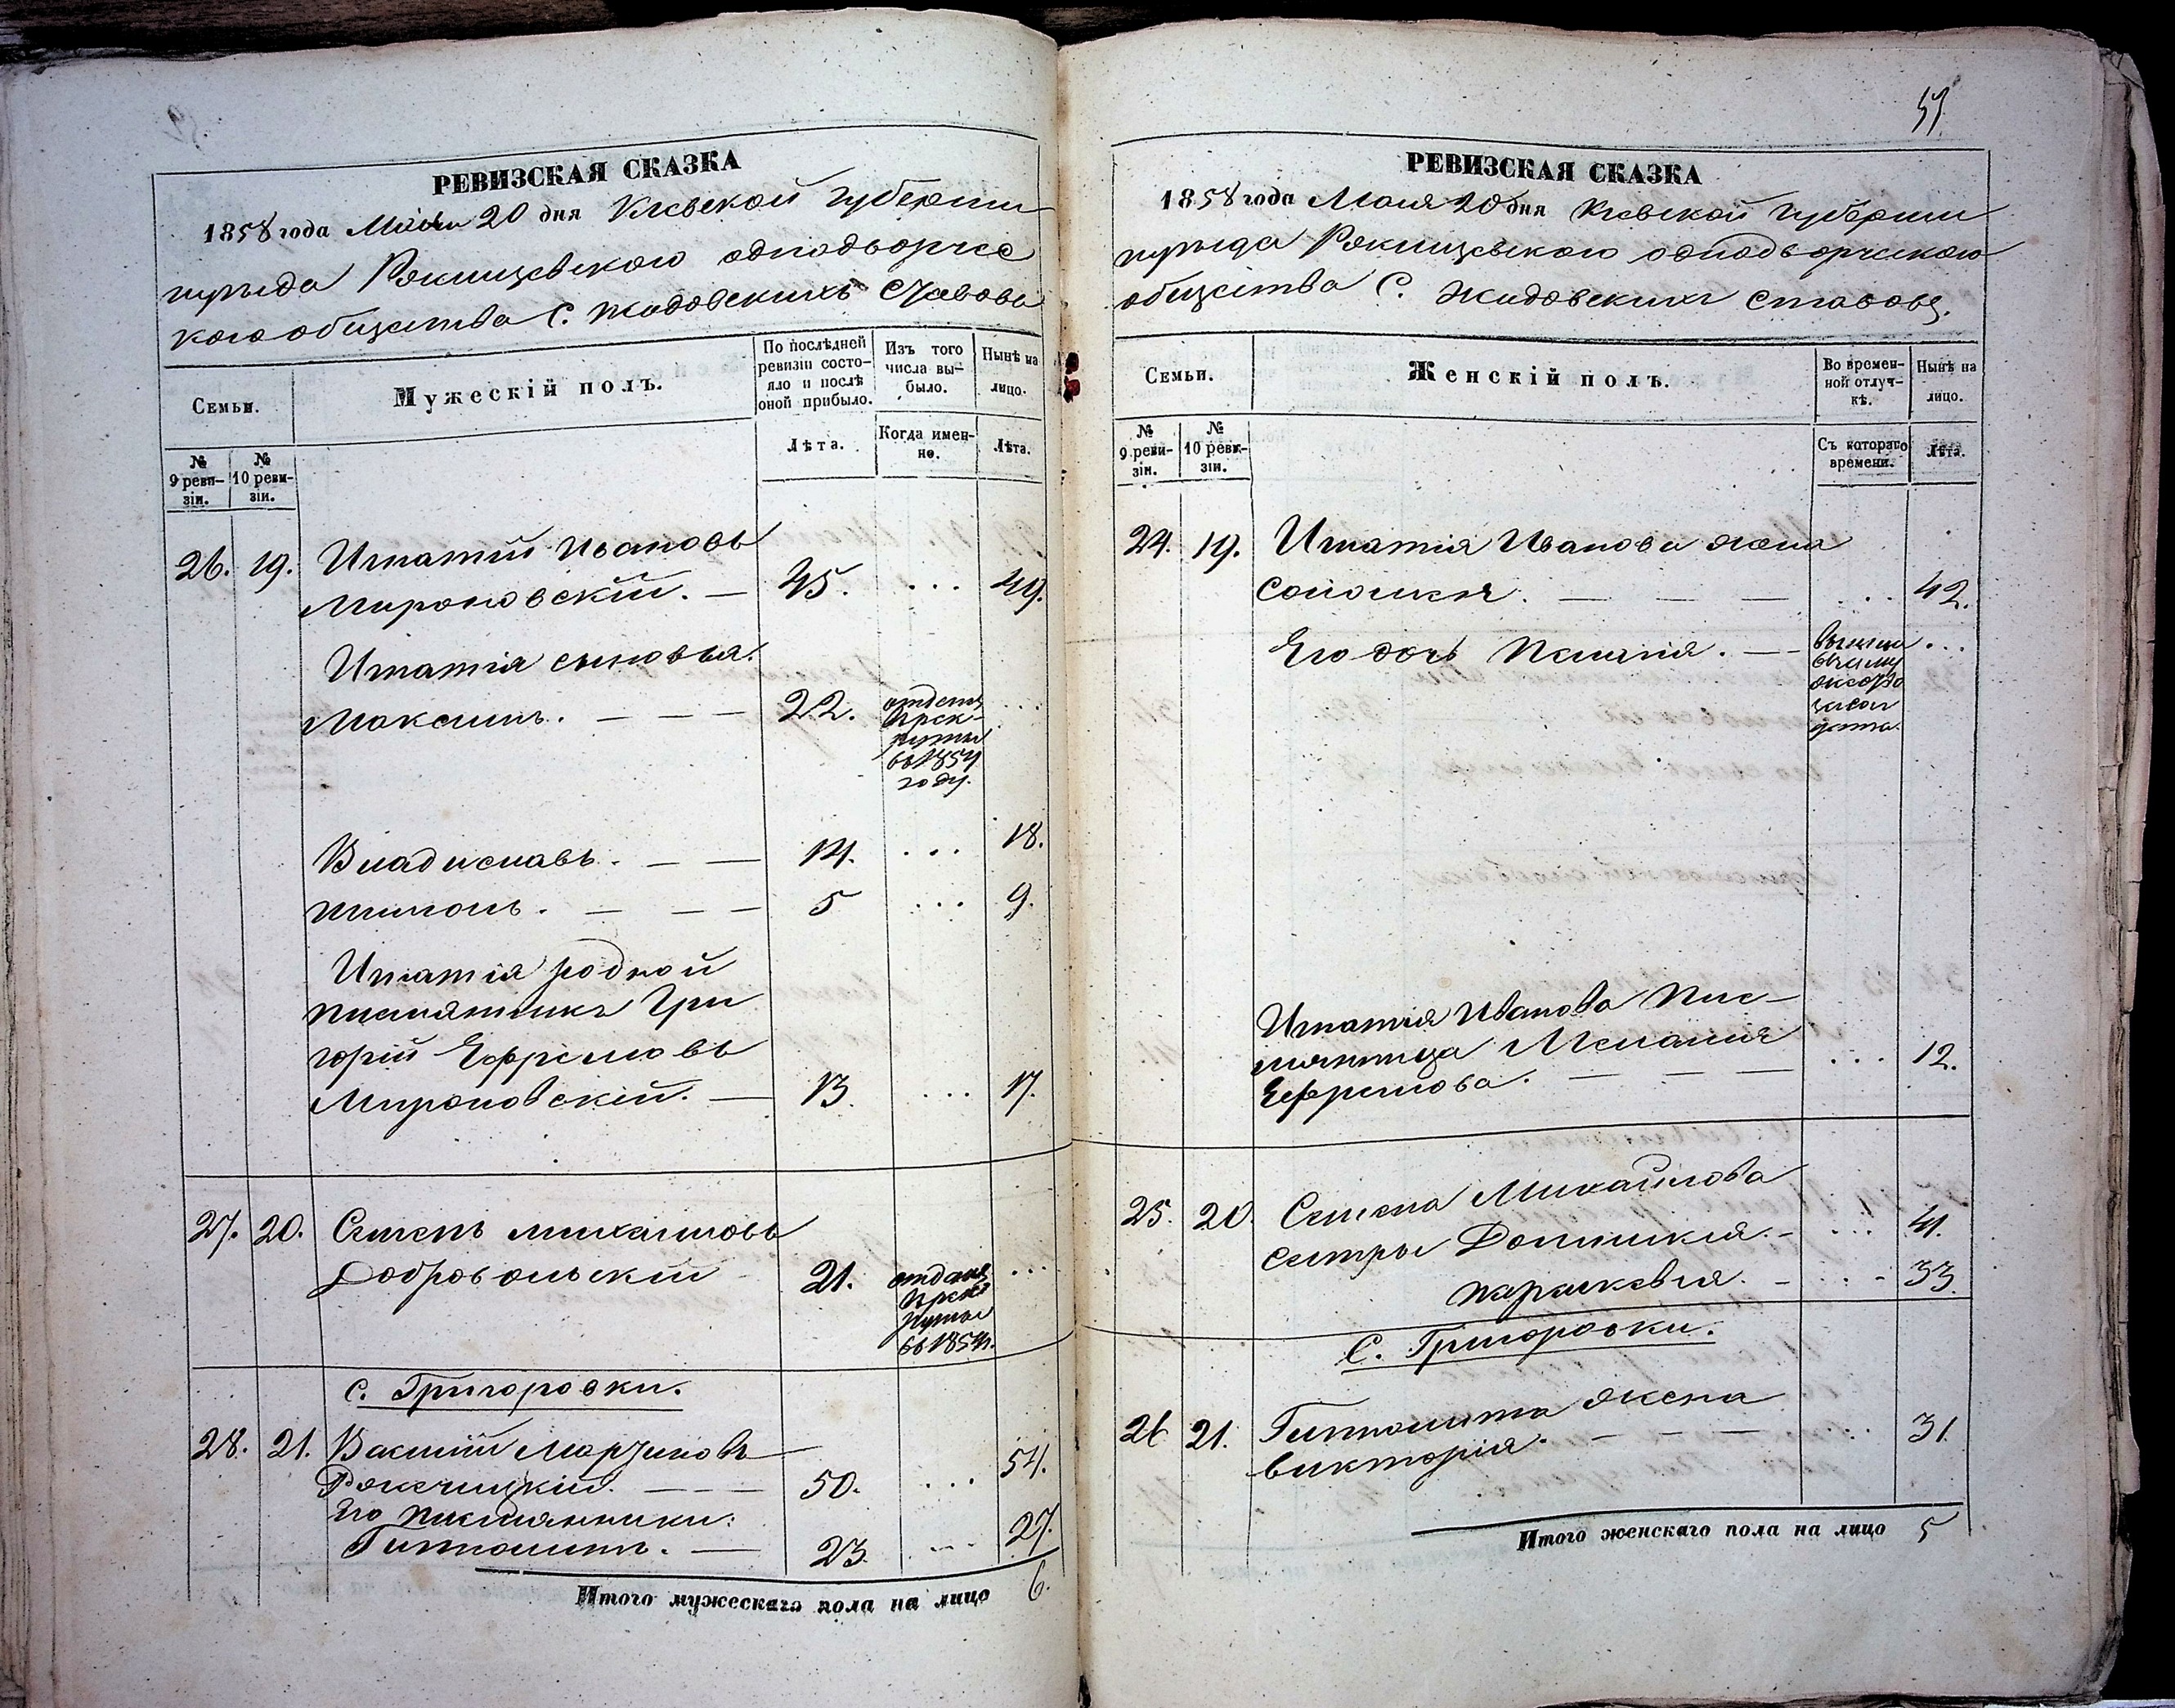 РЕВИЗСКАЯ СКАЗКА
1858 года Маія 20 дня Кіевской Губерніи
уезда Ржищевскаго однодворчес
каго общества С. Жидовскихъ Ставовъ
Семьи.
Мужескій полъ.
По послѣдней ревизіи состояло и послѣ оной прибыло.
Изъ того числа выбыло.
Нынѣ на лицо.
№ 9 ревизіи.
№ 10 ревизіи.
Лѣта.
Когда именно.
Лѣта.
26. 19. Игнатій Ивановъ
Мироновскій. — 45. ... 49.
Игнатія сыновья.
Максимъ. — — — 22. отданъ
в рек-
руты
въ 1854
году.
...
Владиславъ. — — 14. ... 18.
Антонъ. — — — 5 ... 9.
Игнатія родной
племянникъ Гри
горій Ефремовъ
Мироновскій. — 13. ... 17.
27. 20. Семенъ Михайловъ
Добровольскій 21. отданъ ...
в рек
руты
въ 1854.
С. Григоровки.
28. 21. Василій Марціновъ
50. ... 54.
Его племянники:
Гипполитъ. — 23. ... 27.
Итого мужескаго пола на лицо 6.
57
РЕВИЗСКАЯ СКАЗКА
1858 года Маія 20 дня Кіевской Губерніи
уезда Ржищевскаго однодворческаго
общества С. Жидовскихъ Ставовъ.
Семьи.
Женскій полъ.
Во временной отлучкѣ.
Нынѣ на лицо.
№ 9 ревизіи.
№ 10 ревизіи.
Съ котораго времени.
Лѣта.
24. 19. Игнатія Иванова жена
Соломія. — — — ... 42.
Его дочь Пелагія. — вышла ...
взаму
жество
за сол
дата.
Игнатія Иванова Пле-
мянница Меланія
Ефремова. — — — ... 12.
25. 20. Семена Михайлова
сестры Доминикія. - ... 41.
Параскевія. - ... 33.
С. Григоровки.
26 21. Гипполита жена
Викторія. — — — ... 31.
Итого женскаго пола на лицо 5